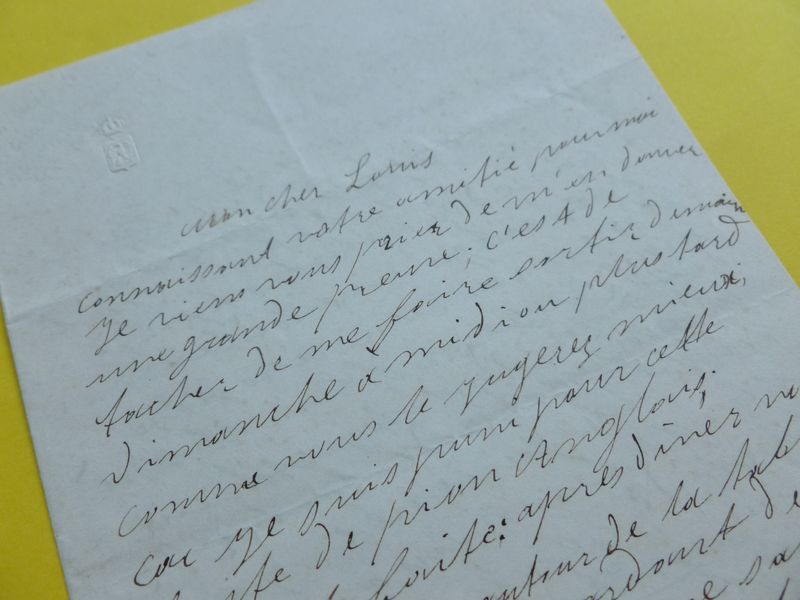 Mon cher Louis
connaissant votre amitié pour moi
je viens vous prier de m'en donner
une grande preuve, c'est de
tacher de me faire sortir demain
Dimanche à midi ou plus tard
comme vous le jugerez mieux,
car je suis puni pour cette
de pion Anglais;
: après dîner
autour de la